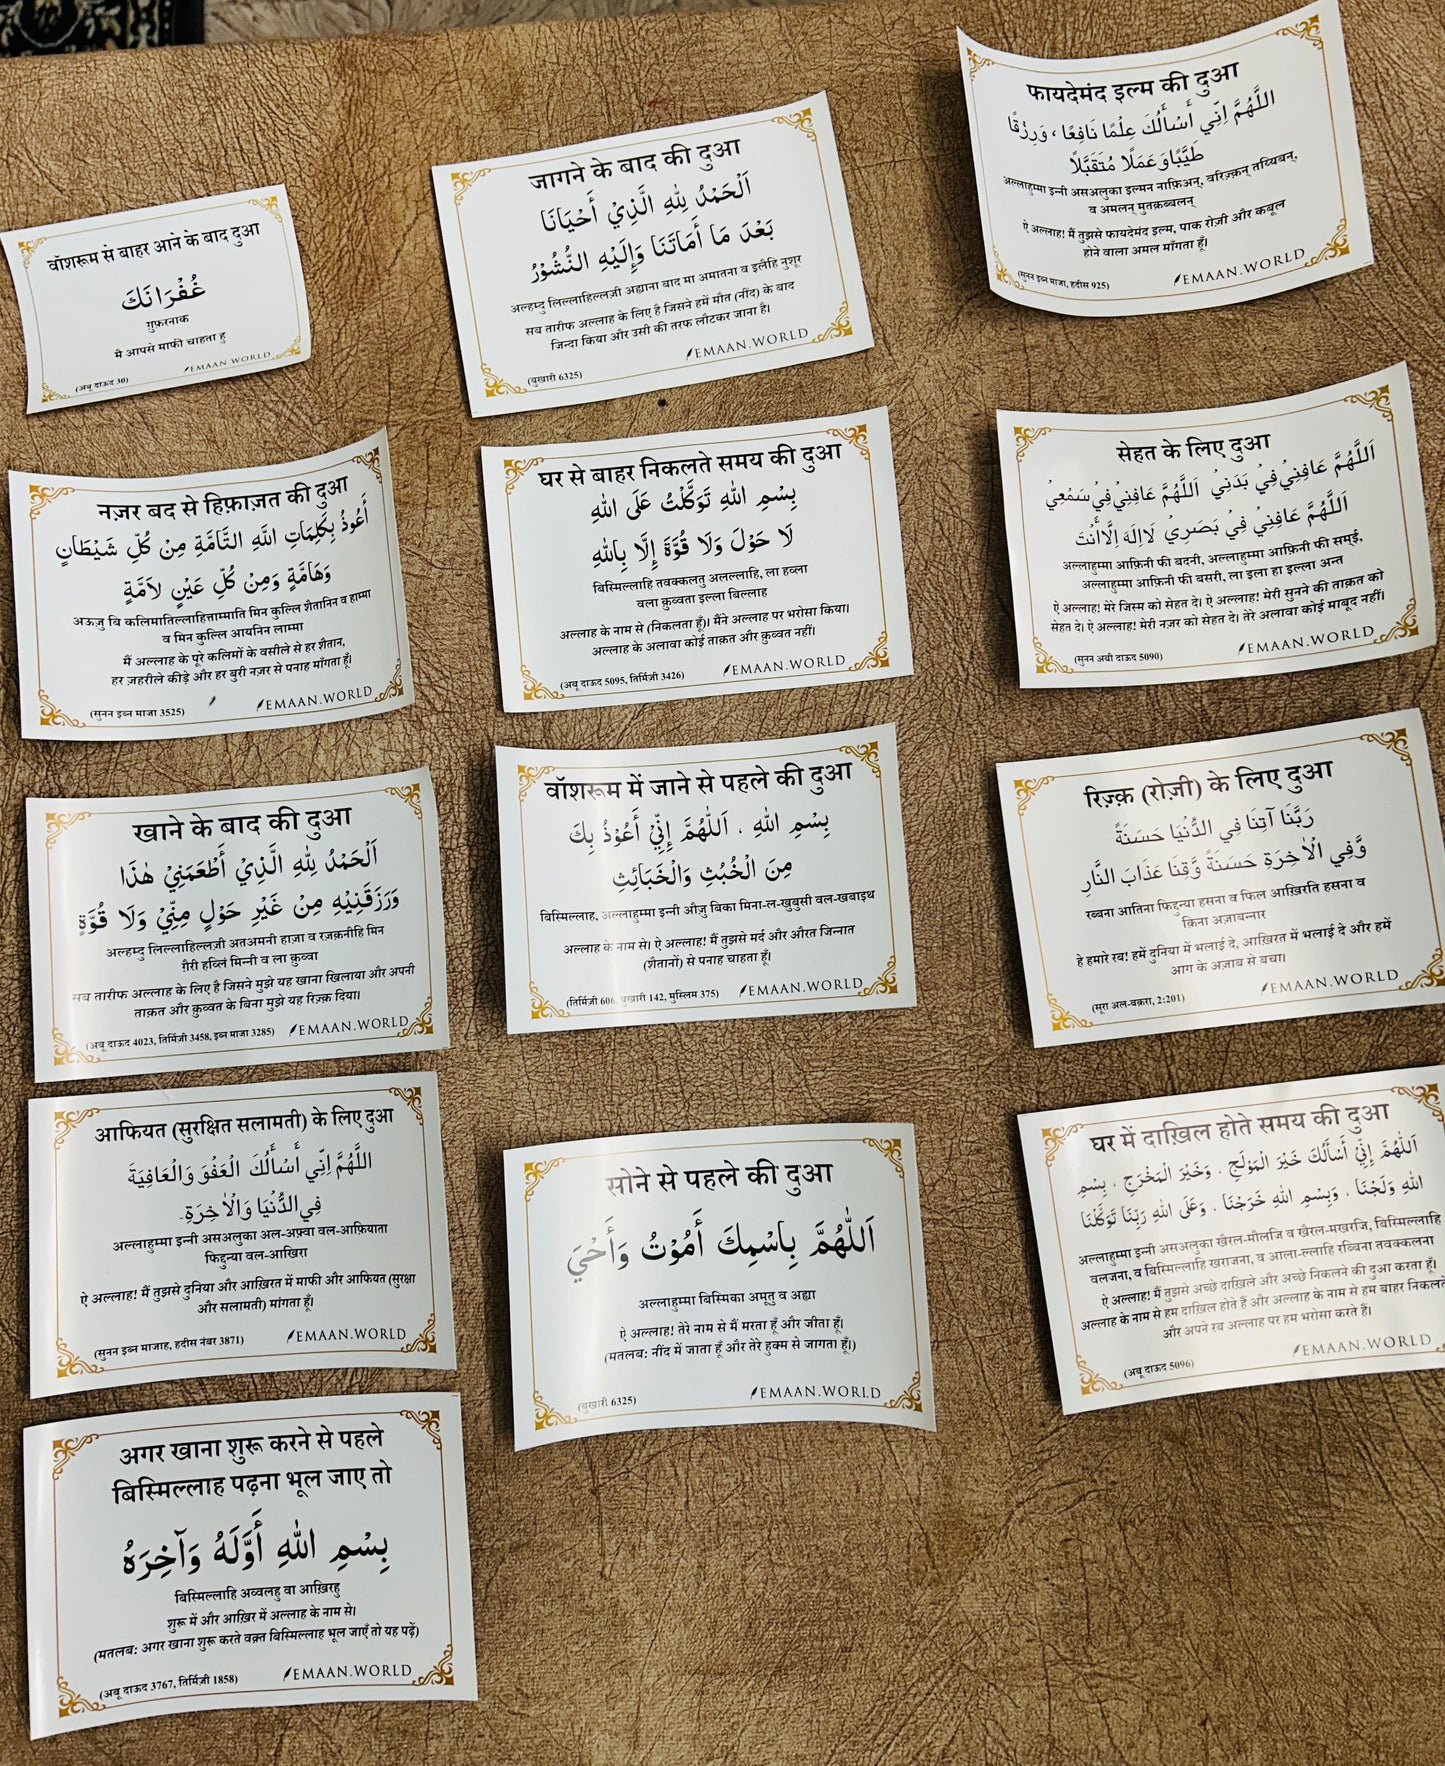 वॉशरूम से बाहर आने के बाद दुआ
غُفْرَانَكَ
ग़ुफ़रनाक
मै आपसे माफी चाहता हु
(अबू दाऊद 30)
EMAAN.WORLD
नज़र बद से हिफ़ाज़त की दुआ
أَعُوذُ بِكَلِمَاتِ اللَّهِ التَّامَّةِ مِنْ كُلِّ شَيْطَانٍ
وَهَامَّةٍ وَمِنْ كُلِّ عَيْنٍ لاَمَّةٍ
अऊज़ु बि कलिमातिल्लाहित्ताम्माति मिन कुल्लि शैतानिन व हाम्मा
व मिन कुल्लि आयनिन लाम्मा
मैं अल्लाह के पूरे कलिमों के वसीले से हर शैतान,
हर ज़हरीले कीड़े और हर बुरी नज़र से पनाह माँगता हूँ।
(सुनन इब्न माजा 3525)
EMAAN.WORLD
खाने के बाद की दुआ
اَلْحَمْدُ لِلهِ الَّذِيْ أَطْعَمَنِيْ هٰذَا
وَرَزَقَنِيْهِ مِنْ غَيْرِ حَوْلٍ مِنِّيْ وَلَا قُوَّةٍ
अल्हम्दु लिल्लाहिल्लज़ी अतअमनी हाज़ा व रज़क़नीहि मिन
ग़ैरी हव्लिं मिन्नी व ला क़ुव्वा
सब तारीफ अल्लाह के लिए है जिसने मुझे यह खाना खिलाया और अपनी
ताक़त और क़ुव्वत के बिना मुझे यह रिज़्क़ दिया।
(अबू दाऊद 4023, तिर्मिज़ी 3458, इब्न माजा 3285)
EMAAN.WORLD
आफियत (सुरक्षित सलामती) के लिए दुआ
اللَّهُمَّ إِنِّي أَسْأَلُكَ الْعَفْوَ وَالْعَافِيَةَ
فِي الدُّنْيَا وَالْاٰخِرَةِ.
अल्लाहुम्मा इन्नी असअलुका अल-अफ़्वा वल-आफ़ियाता
फिद्दुन्या वल-आखिरा
ऐ अल्लाह! मैं तुझसे दुनिया और आख़िरत में माफी और आफियत (सुरक्षा
और सलामती) मांगता हूँ।
(सुनन इब्न माजाह, हदीस नंबर 3871)
EMAAN.WORLD
अगर खाना शुरू करने से पहले
बिस्मिल्लाह पढ़ना भूल जाए तो
بِسْمِ اللهِ أَوَّلَهُ وَآخِرَهُ
बिस्मिल्लाहि अव्वलहु वा आख़िरहु
शुरू में और आख़िर में अल्लाह के नाम से।
(मतलब: अगर खाना शुरू करते वक़्त बिस्मिल्लाह भूल जाएँ तो यह पढ़ें)
(अबू दाऊद 3767, तिर्मिज़ी 1858)
EMAAN.WORLD
जागने के बाद की दुआ
اَلْحَمْدُ لِلهِ الَّذِيْ أَحْيَانَا
بَعْدَ مَا أَمَاتَنَا وَإِلَيْهِ النُّشُوْرُ
अल्हम्दु लिल्लाहिल्लज़ी अह्याना बाद मा अमातना व इलैहि नुशूर
सब तारीफ अल्लाह के लिए है जिसने हमें मौत (नींद) के बाद
जिन्दा किया और उसी की तरफ लौटकर जाना है।
(बुखारी 6325)
EMAAN.WORLD
घर से बाहर निकलते समय की दुआ
بِسْمِ اللهِ تَوَكَّلْتُ عَلَى اللهِ
لَا حَوْلَ وَلَا قُوَّةَ إِلَّا بِاللهِ
बिस्मिल्लाहि तवक्कलतु अलल्लाहि, ला हव्ला
वला क़ुव्वता इल्ला बिल्लाह
अल्लाह के नाम से (निकलता हूँ)। मैंने अल्लाह पर भरोसा किया।
अल्लाह के अलावा कोई ताक़त और क़ुव्वत नहीं।
(अबू दाऊद 5095, तिर्मिज़ी 3426)
EMAAN.WORLD
वॉशरूम में जाने से पहले की दुआ
بِسْمِ اللهِ ، اَللّٰهُمَّ إِنِّيْ أَعُوْذُ بِكَ
مِنَ الْخُبُثِ وَالْخَبَائِثِ
बिस्मिल्लाह, अल्लाहुम्मा इन्नी औज़ु बिका मिना-ल-खुबुसी वल-खबाइथ
अल्लाह के नाम से। ऐ अल्लाह! मैं तुझसे मर्द और औरत जिन्नात
(शैतानों) से पनाह चाहता हूँ।
(तिर्मिज़ी 606, बुखारी 142, मुस्लिम 375)
EMAAN.WORLD
सोने से पहले की दुआ
اَللّٰهُمَّ بِاسْمِكَ أَمُوْتُ وَأَحْيَ
अल्लाहुम्मा बिस्मिका अमूतु व अह्या
ऐ अल्लाह! तेरे नाम से मैं मरता हूँ और जीता हूँ।
(मतलब: नींद में जाता हूँ और तेरे हुक्म से जागता हूँ।)
(बुखारी 6325)
EMAAN.WORLD
फायदेमंद इल्म की दुआ
اللَّهُمَّ إِنِّي أَسْأَلُكَ عِلْمًا نَافِعًا ، وَرِزْقًا
طَيِّبًا وَعَمَلًا مُتَقَبَّلًا
अल्लाहुम्मा इन्नी असअलुका इल्मन नाफ़िअन्, वरिज़्क़न् तय्यिबन्,
व अमलन् मुतक़ब्बलन्
ऐ अल्लाह! मैं तुझसे फायदेमंद इल्म, पाक रोज़ी और कबूल
होने वाला अमल माँगता हूँ।
(सुनन इब्न माजा, हदीस 925)
EMAAN.WORLD
सेहत के लिए दुआ
اَللَّهُمَّ عَافِنِيْ فِيْ بَدَنِيْ اَللَّهُمَّ عَافِنِيْ فِيْ سَمْعِيْ
اَللَّهُمَّ عَافِنِيْ فِيْ بَصَرِيْ لَا اِلَهَ اِلَّا أَنْتَ
अल्लाहुम्मा आफ़िनी फी बदनी, अल्लाहुम्मा आफ़िनी फी सम्ई,
अल्लाहुम्मा आफ़िनी फी बसरी, ला इला हा इल्ला अन्त
ऐ अल्लाह! मेरे जिस्म को सेहत दे। ऐ अल्लाह! मेरी सुनने की ताक़त को
सेहत दे। ऐ अल्लाह! मेरी नज़र को सेहत दे। तेरे अलावा कोई माबूद नहीं।
(सुनन अबी दाऊद 5090)
EMAAN.WORLD
रिज़्क़ (रोज़ी) के लिए दुआ
رَبَّنَا آتِنَا فِي الدُّنْيَا حَسَنَةً
وَّفِي الْاٰخِرَةِ حَسَنَةً وَّقِنَا عَذَابَ النَّارِ
रब्बना आतिना फिद्दुन्या हसना व फिल आख़िरति हसना व
क़िना अज़ाबन्नार
हे हमारे रब! हमें दुनिया में भलाई दे, आख़िरत में भलाई दे और हमें
आग के अज़ाब से बचा।
(सूरा अल-बक़रा, 2:201)
EMAAN.WORLD
घर में दाख़िल होते समय की दुआ
اَللّٰهُمَّ إِنِّيْ أَسْأَلُكَ خَيْرَ الْمَوْلَجِ ، وَخَيْرَ الْمَخْرَجِ ، بِسْمِ
اللهِ وَلَجْنَا ، وَبِسْمِ اللهِ خَرَجْنَا ، وَعَلَى اللهِ رَبِّنَا تَوَكَّلْنَا
अल्लाहुम्मा इन्नी असअलुका खैरल-मौलजि व खैरल-मखरजि, बिस्मिल्लाहि
वलजना, व बिस्मिल्लाहि खराजना, व आला-ल्लाहि रब्बिना तवक्कलना
ऐ अल्लाह! मैं तुझसे अच्छे दाख़िले और अच्छे निकलने की दुआ करता हूँ।
अल्लाह के नाम से हम दाख़िल होते हैं और अल्लाह के नाम से हम बाहर निकलते
और अपने रब अल्लाह पर हम भरोसा करते हैं।
(अबू दाऊद 5096)
EMAAN.WORLD